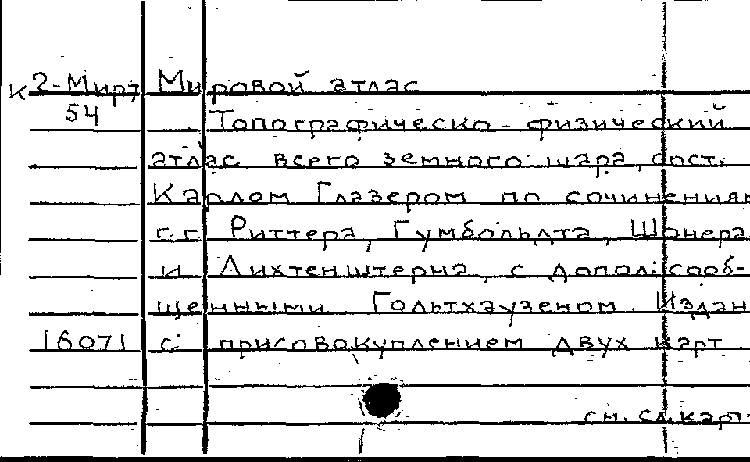 к 2-Мирт Мировой атлас
54 Топографическо-физический
атлас всего земного шара, сост.
Карлом Глазером по сочинениям
г.г. Риттера, Гумбольдта, Шанера
и Лихтенштерна, с допол. сооб-
щенными Гольтхаузеном. Издан
16071 с присовокуплением двух карт
см. сл. карт.